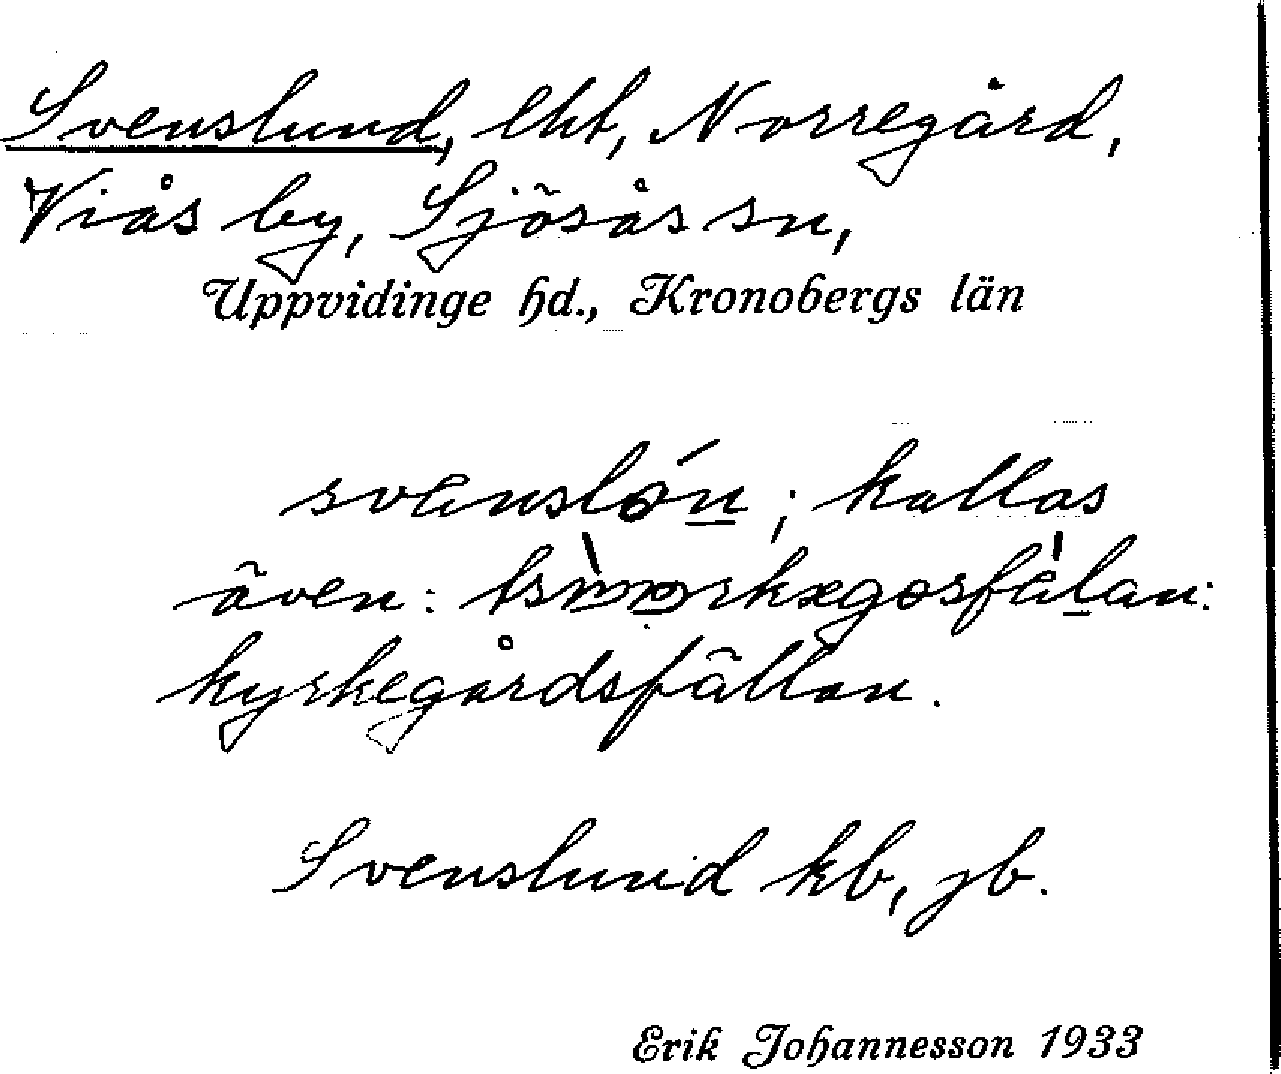 Svenslund, lht, Norregård,
Viås by, Sjösås sn,
Uppvidinge hd., Kronobergs län
kallas
även:
kyrkegårdsfällan.
Svenslund kb, jb.
Erik Johannesson 1933